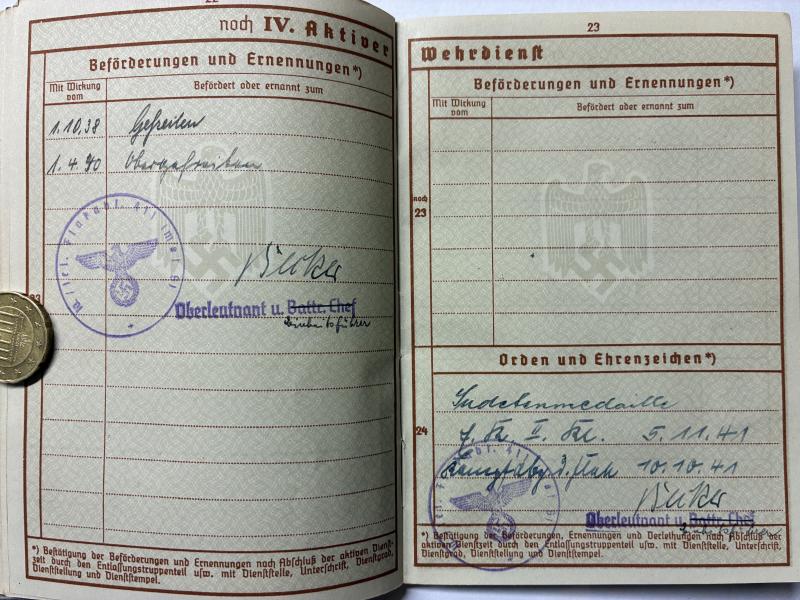 22
noch IV. Aktiver
Beförderungen und Ernennungen*)
Mit Wirkung vom
Befördert oder ernannt zum
1.10.38 Gefreiten
1.4.40 Obergefreiten
23
Oberleutnant u. Battr. Chef
Einheitsführer
*) Bestätigung der Beförderungen und Ernennungen nach Abschluß der aktiven Dienst-
zeit durch den Entlassungstruppenteil usw. mit Dienststelle, Unterschrift, Dienstgrad,
Dienststellung und Dienststempel.
23
Wehrdienst
Beförderungen und Ernennungen*)
Mit Wirkung vom
Befördert oder ernannt zum
noch
23
Orden und Ehrenzeichen*)
24
Sudetenmedaille
II. Kl. 5.11.41
Kampfabz. d. Flak 10.10.41
Oberleutnant u. Battr. Chef
*) Bestätigung der Beförderungen, Ernennungen und Verleihungen nach Abschluß der
aktiven Dienstzeit durch den Entlassungstruppenteil usw. mit Dienststelle, Unterschrift,
Dienstgrad, Dienststellung und Dienststempel.